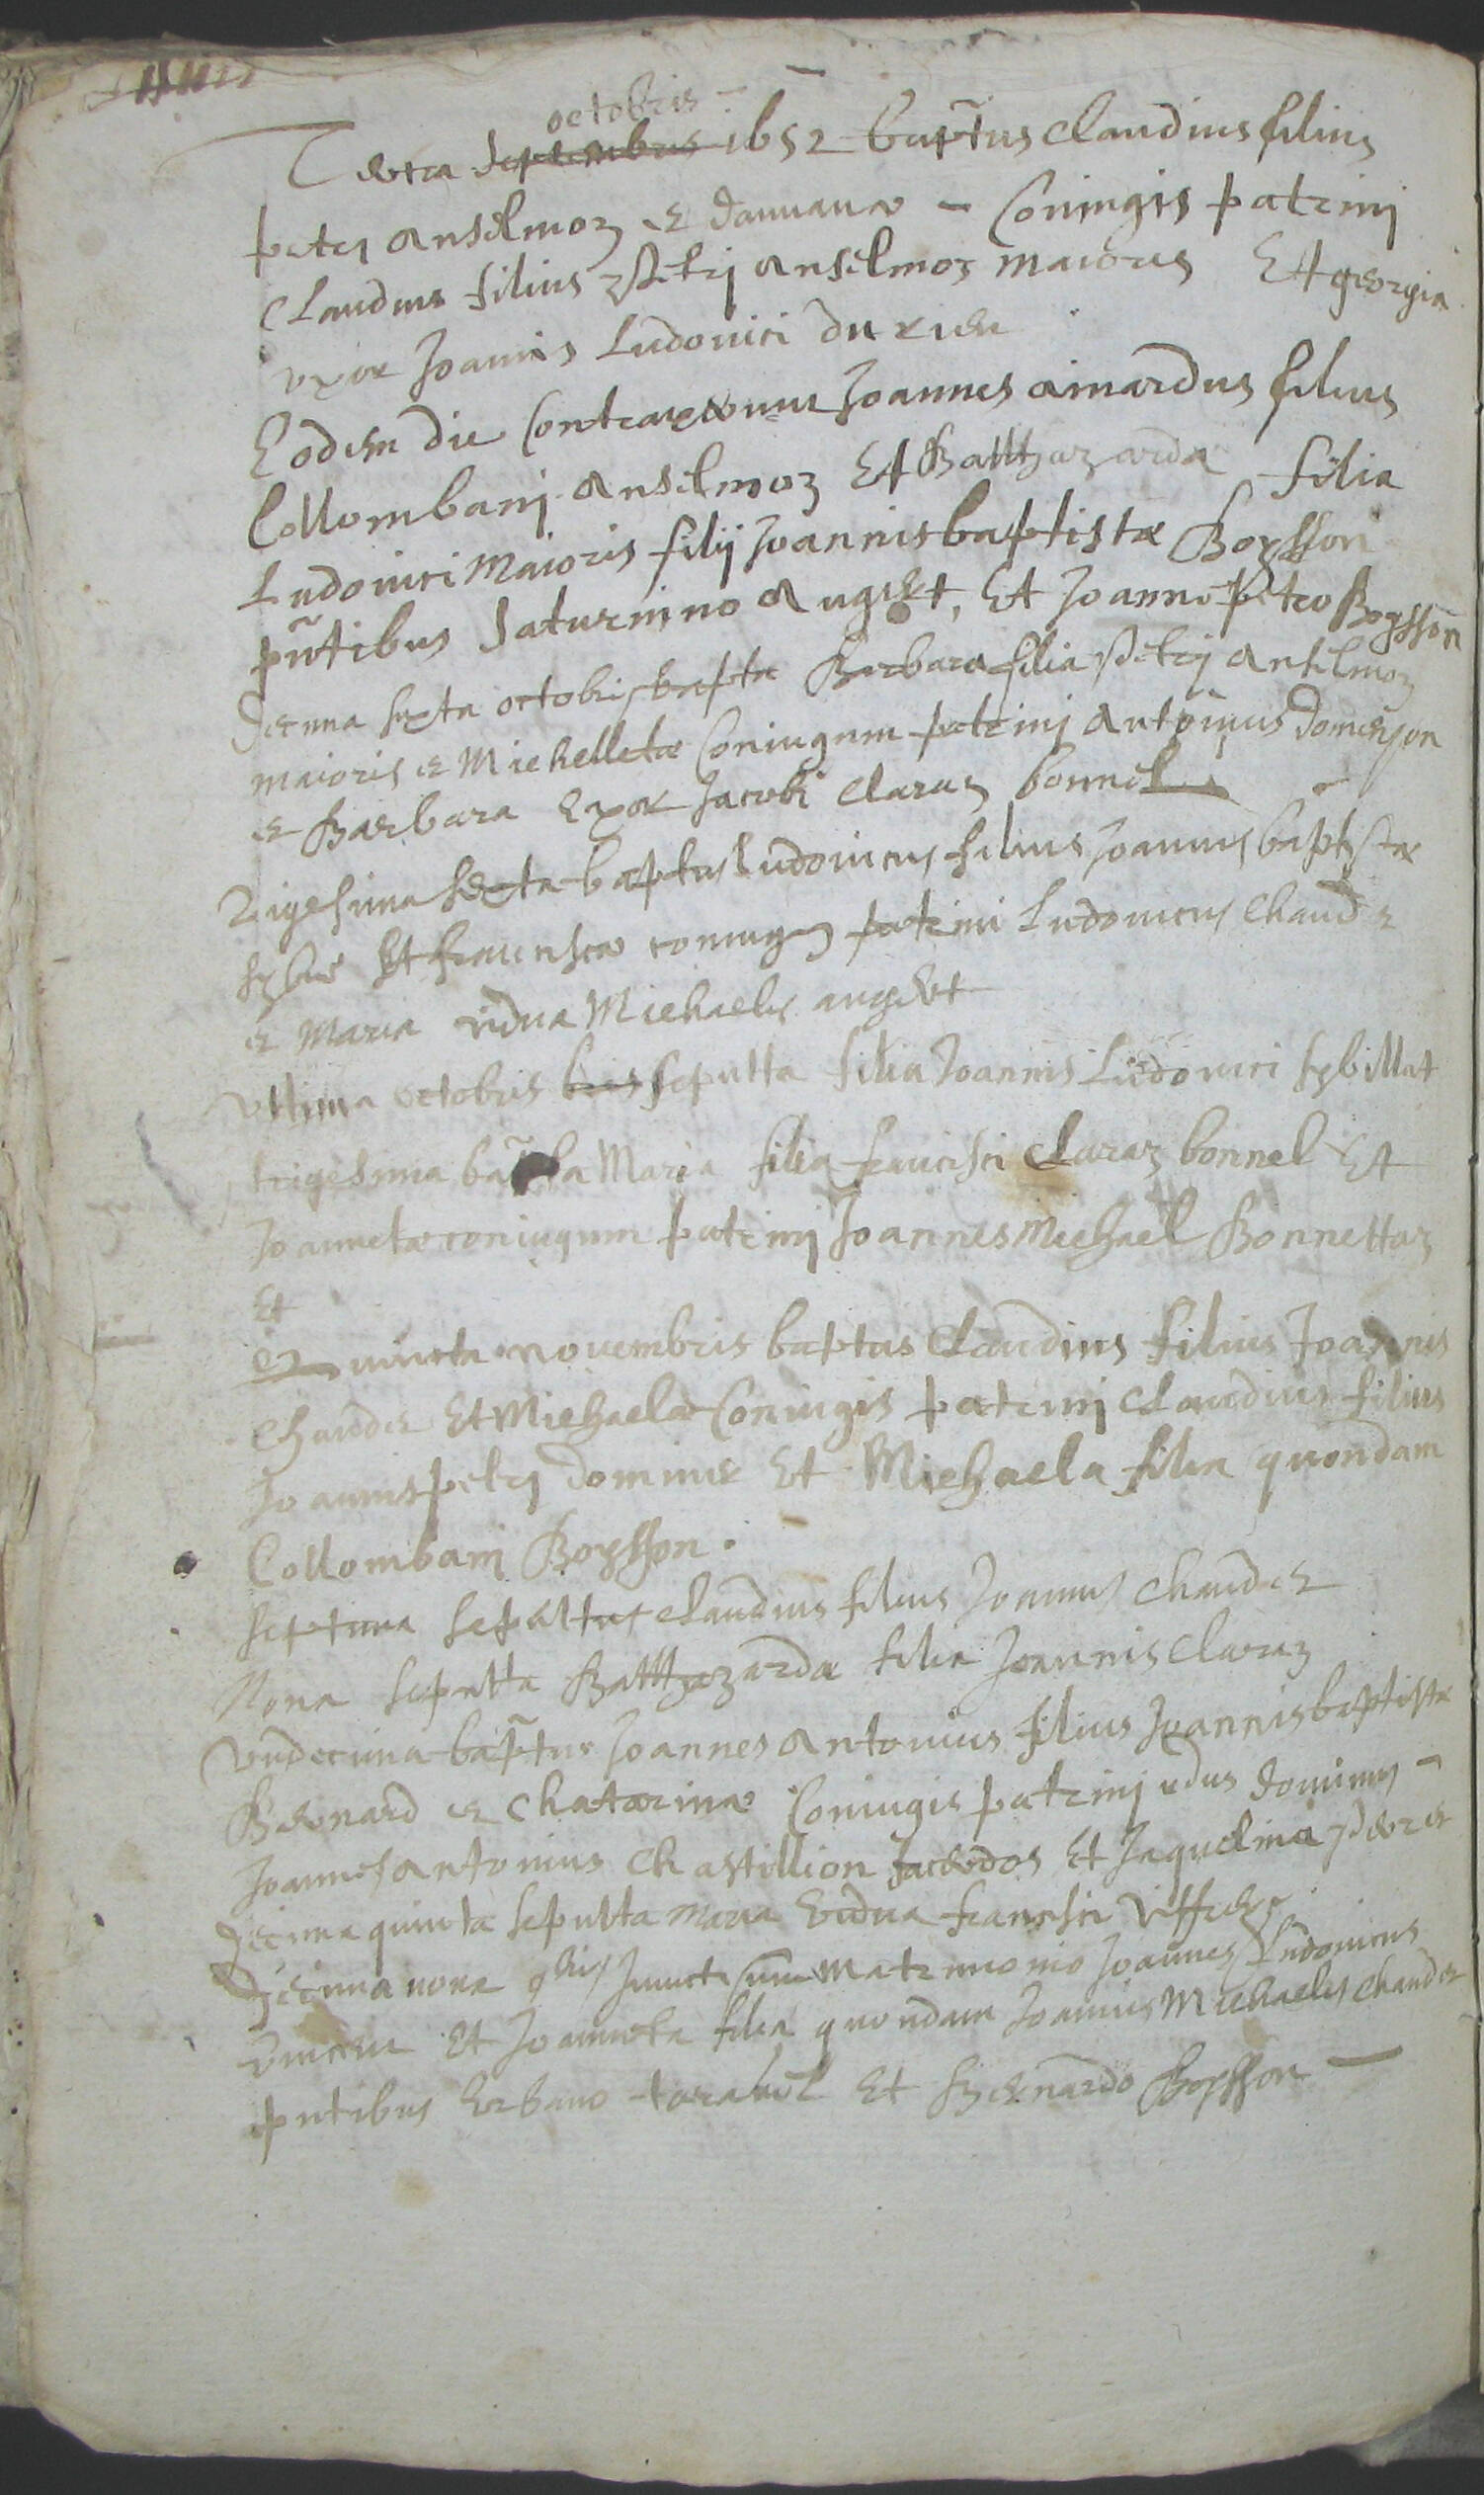 octobris
Tertia septembris 1652 baptus Claudius filius
petri anselmoz et Coniugis patrinj
Claudius filius petrj anselmoz maioris Et georgia
vxor Joannis Ludovici du rieu
Eodem die Contraxerunt Joannes aimardus filius
Collombanj anselmoz Et Balthazarda filia
Ludovici Maioris filij Joannis baptistæ Boysson
pntibus Saturnino augert, Et Joanne petro Boysson
decima sexta octobris bapta Barbara filia petrj anselmoz
maioris et Michelletæ Coniugum patrinj antonius domenjon
et Barbara Exor Jacobi Claraz bonnel
Vigesima sexta baptus Ludovicus filius Joannis baptistæ
Et franciscæ coniugum patrini Ludovicus Chaudet
et Maria vidua Michaelis augert
vltima octobris sepulta filia Joannis Ludovici sybillat
trigesima bapta Maria filia francisci Claraz bonnel Et
Joannetæ coniugum patrinj Joannes Michael Bonnettaz
Et
Quinta novembris baptus Claudius filius Joannis
Chaudet Et Michaelæ Coniugis patrinj Claudius filius
Joannis petrj dominie Et Michaela filia quondam
Collombanj Boysson.
septima sepultus Claudius filius Joannis Chaudet
Nona sepulta Balthazarda filia Joannis Claraz
vndecima baptus Joannes antonius filius Joannis baptistæ
Bernard et Chatarinæ Coniugis patrinj rdus dominus
Joannes antonius Chastillion sacerdos Et Jaquelina
decima quinta sepulta maria vidua francisci viffrey
decima nona 9bris Juncti sunt matrimonio Joannes Ludovicus
vincen Et Joanneta filia quondam Joannis Michaelis Chaudet
pntibus Et Bernardo Boysson